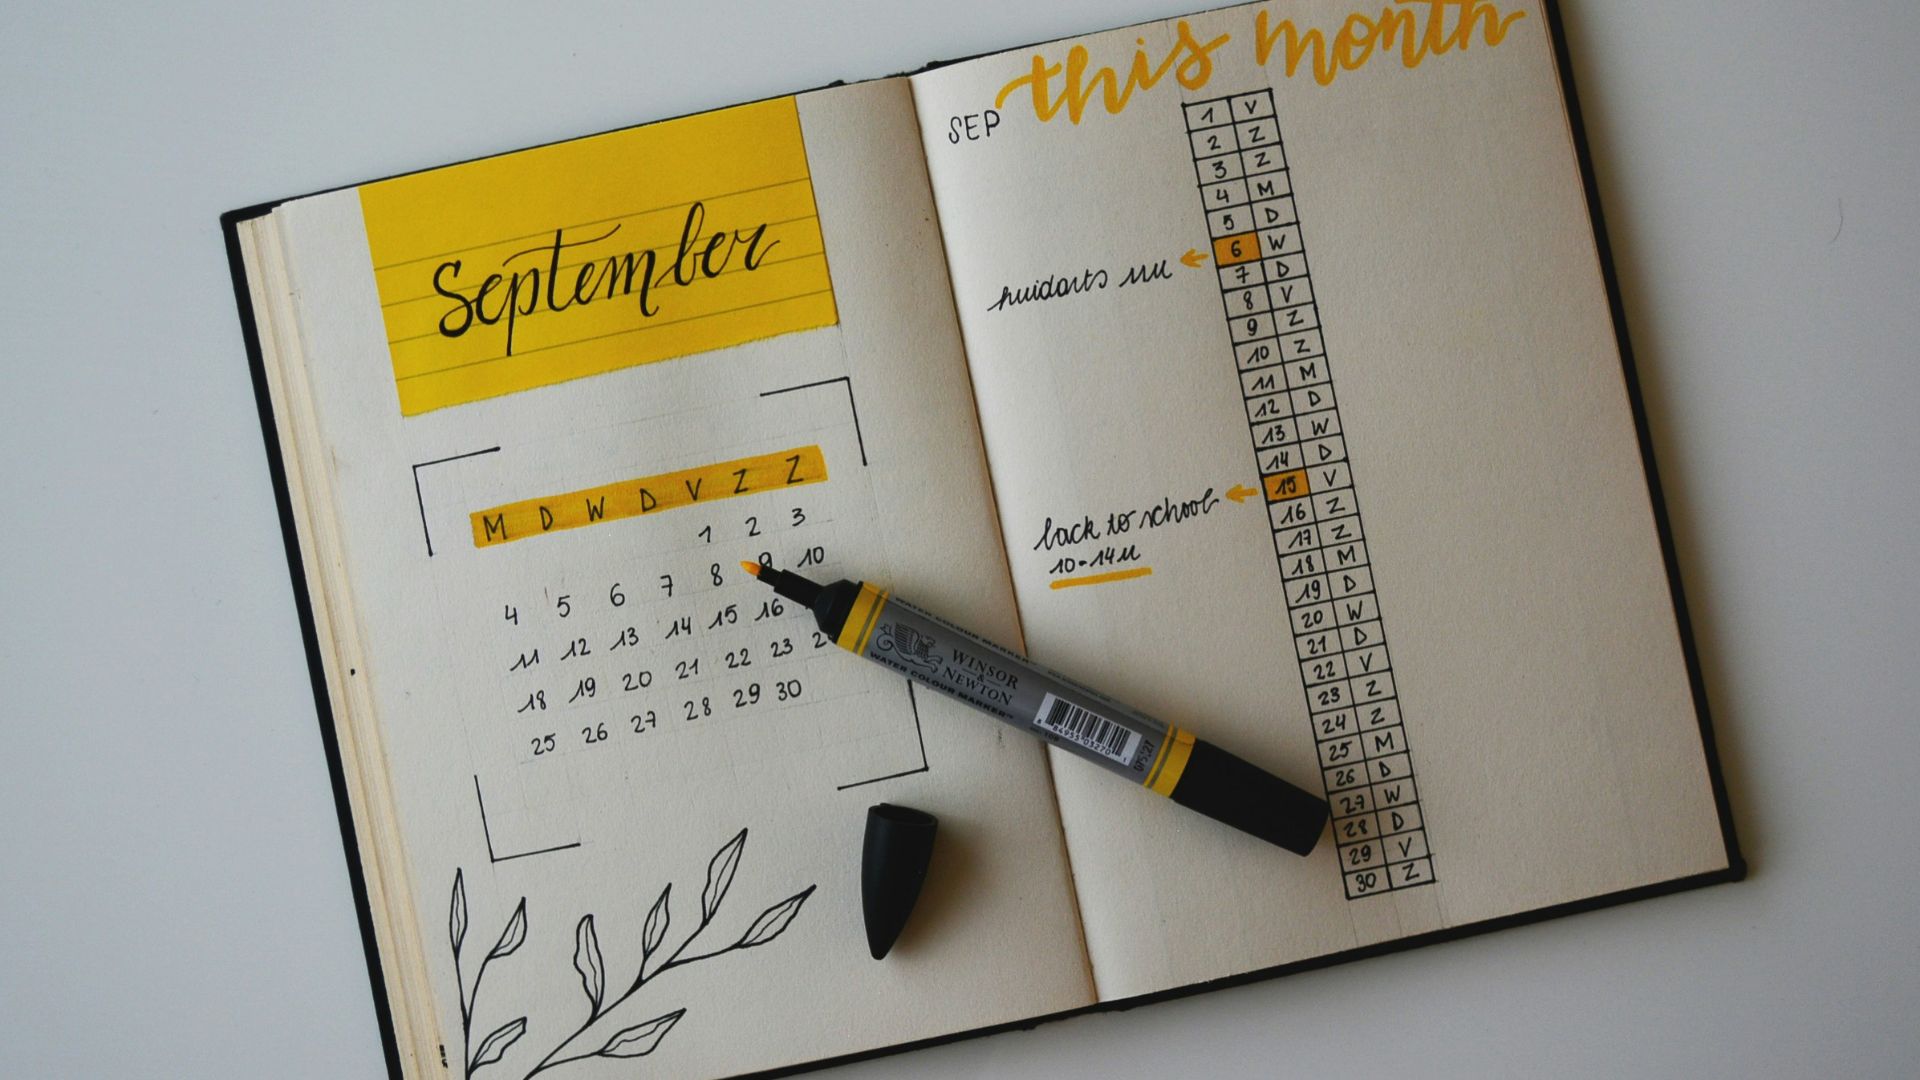 September
M D W D V Z Z
1 2 3
4 5 6 7 8 9 10
11 12 13 14 15 16
18 19 20 21 22 23
25 26 27 28 29 30
this month
SEP
1 V
2 Z
3 Z
4 M
5 D
6 W
7 D
8 V
9 Z
10 Z
11 M
12 D
13 W
14 D
15 V
16 Z
17 Z
18 M
19 D
20 W
21 D
22 V
23 Z
24 Z
25 M
26 D
27 W
28 D
29 V
30 Z
back to school
10-14u
WATER COLOUR MARKER
WINSOR
&
NEWTON
WATER COLOUR MARKER™